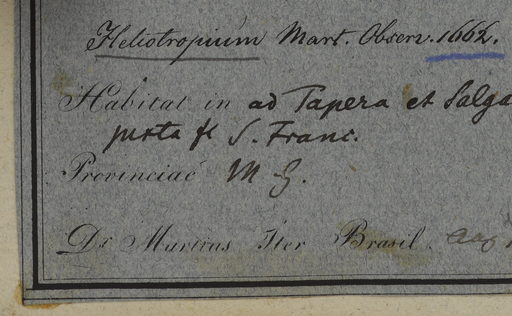 Heliotropium Mart. Observ. 1662.
Habitat in ad Tapera et Salga
juxta fl S. Franc.
Provinciae M G.
Dr Martius Iter Brasil.